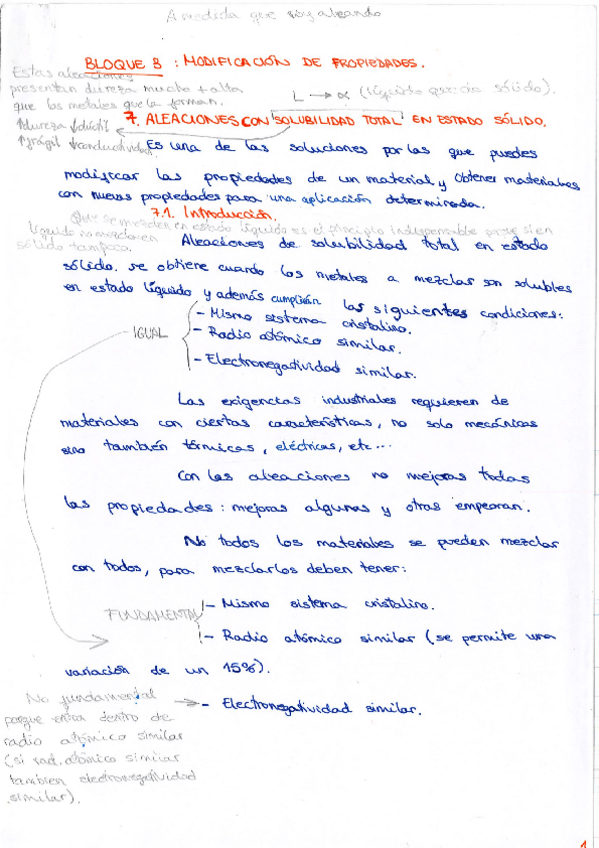 A medida que voy aleando
BLOQUE 3: MODIFICACIÓN DE PROPIEDADES.
Estas aleaciones
presentan dureza mucho + alta
que los metales que la forman.
↑dureza ↓dúctil
↑frágil ↓conductividad
L → α (líquido que da sólido).
7. ALEACIONES CON SOLUBILIDAD TOTAL EN ESTADO SÓLIDO.
Es una de las soluciones por las que puedes
modificar las propiedades de un material y obtener materiales
con nuevas propiedades para una aplicación determinada.
7.1. Introducción.
Que se mezclen en estado líquido es el principio indispensable porque si en
líquido no mezcla en
sólido tampoco.
Aleaciones de solubilidad total en estado
sólido. se obtiene cuando los metales a mezclar son solubles
en estado líquido y además cumplirán las siguientes condiciones:
IGUAL
- Mismo sistema cristalino.
- Radio atómico similar.
- Electronegatividad similar.
Las exigencias industriales requieren de
materiales con ciertas características, no solo mecánicas
sino también térmicas, eléctricas, etc...
Con las aleaciones no mejoras todas
las propiedades: mejoras algunas y otras empeoran.
No todos los materiales se pueden mezclar
con todos, para mezclarlos deben tener:
FUNDAMENTAL
- Mismo sistema cristalino.
- Radio atómico similar (se permite una
variación de un 15%).
- Electronegatividad similar.
No fundamental →
porque entra dentro de
radio atómico similar
(si rad. atómico similar
también electronegatividad
similar).
1